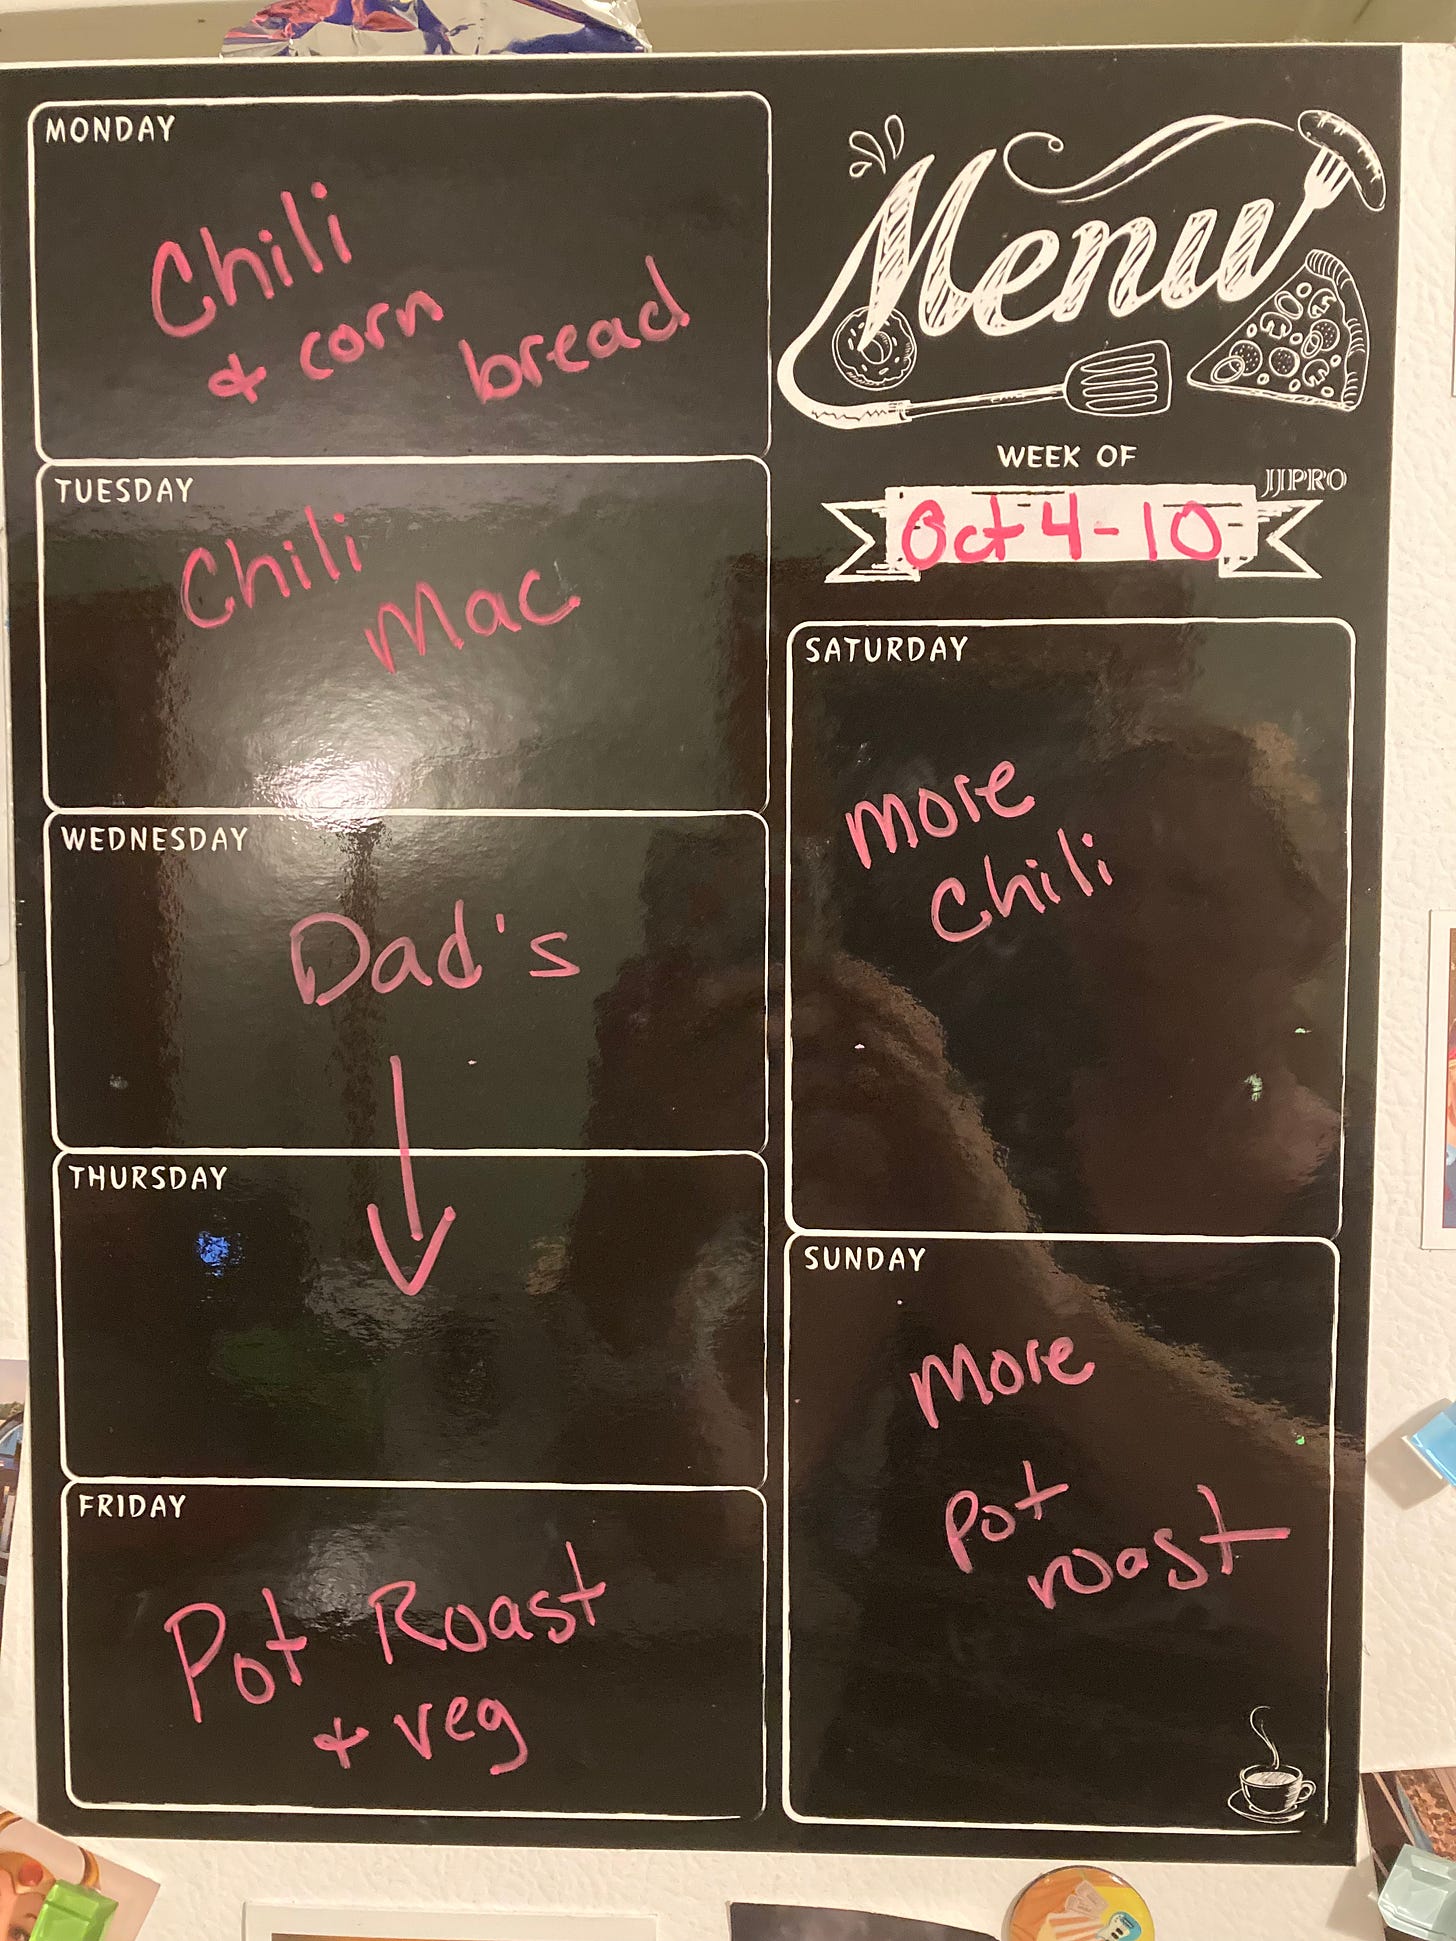 Menu
WEEK OF
JJPRO
Oct 4-10
MONDAY
Chili
& corn bread
TUESDAY
Chili
Mac
WEDNESDAY
Dad's
THURSDAY
FRIDAY
Pot Roast
& veg
SATURDAY
more
chili
SUNDAY
More
pot
roast